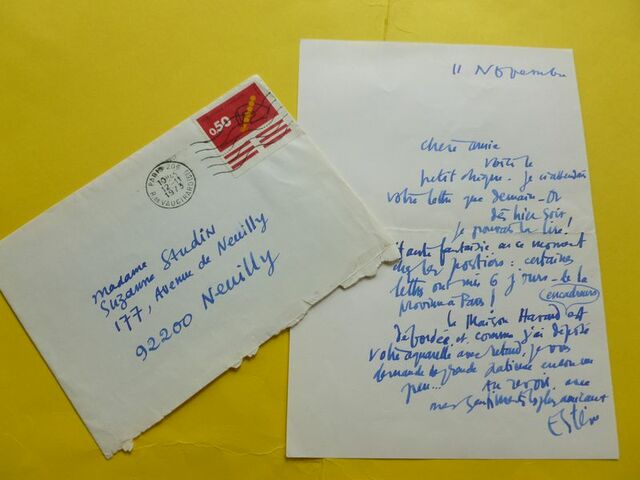 11 Novembre
chère amie
voici le
petit chèque. Je n'attendais
votre lettre que demain. Or
dès hier soir
je pouvais la lire!
autre fantaisie en ce moment
chez les postiers: certaines
lettres ont mis 6 jours de la
province à Paris!
(encadreurs)
la Maison Havard est
débordée et comme j'ai déposé
votre aquarelle avec retard, je vous
demande grande patience encore un
peu... Au revoir, avec
mes sentiments les plus amicaux
Estève
0,50
PARIS 206
12-11
1973
R. DE VAUGIRARD (6e)
Madame
Suzanne Studin
177, Avenue de Neuilly
92200 Neuilly